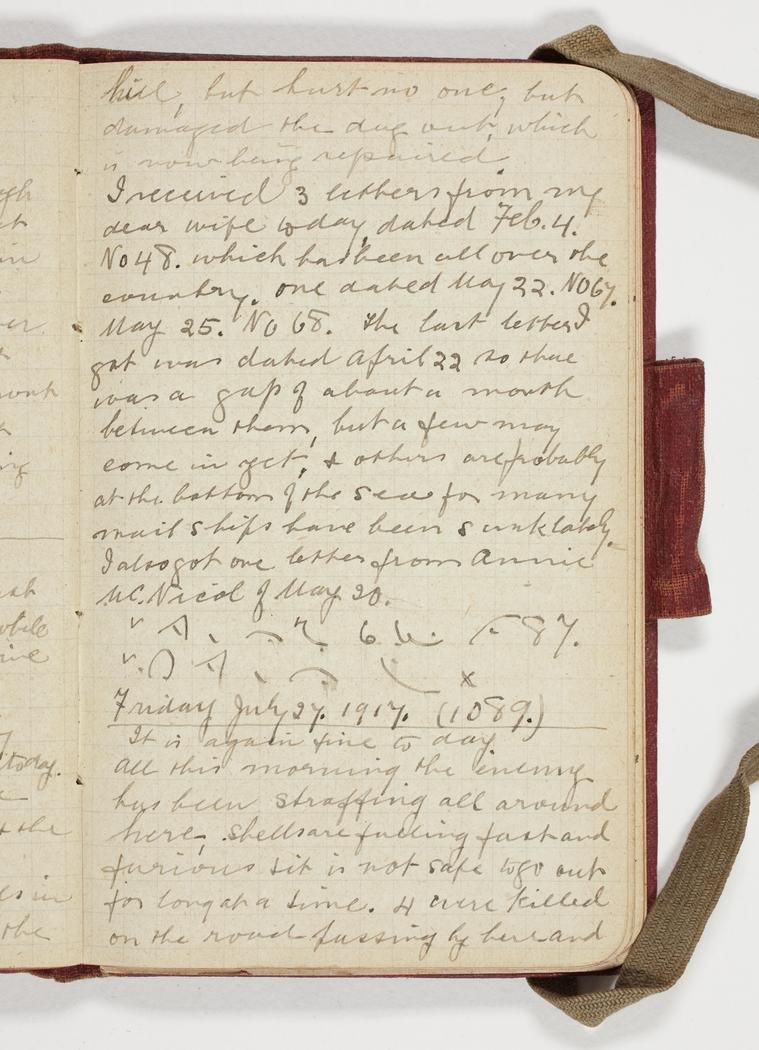 hill, but hurt no one, but
damaged the dug out, which
is now being repaired.
I received 3 letters from my
dear wife today, dated Feb. 4.
No 48. which has been all over the
country. one dated May 22. No 67.
May 25. No 68. The last letter I
got was dated April 22 so there
was a gap of about a month
between them, but a few may
come in yet, & others are probably
at the bottom of the sea for many
mail ships have been sunk lately.
I also got one letter from Annie
Mc. Nicol of May 20.
87.
x
Friday July 27. 1917. (1089.)
It is again fine to day
all this morning the enemy
has been straffing all around
here, shells are falling fast and
furious & it is not safe to go out
for long at a time. 4 were killed
on the road passing by here and
today.
& the
es in
the
while